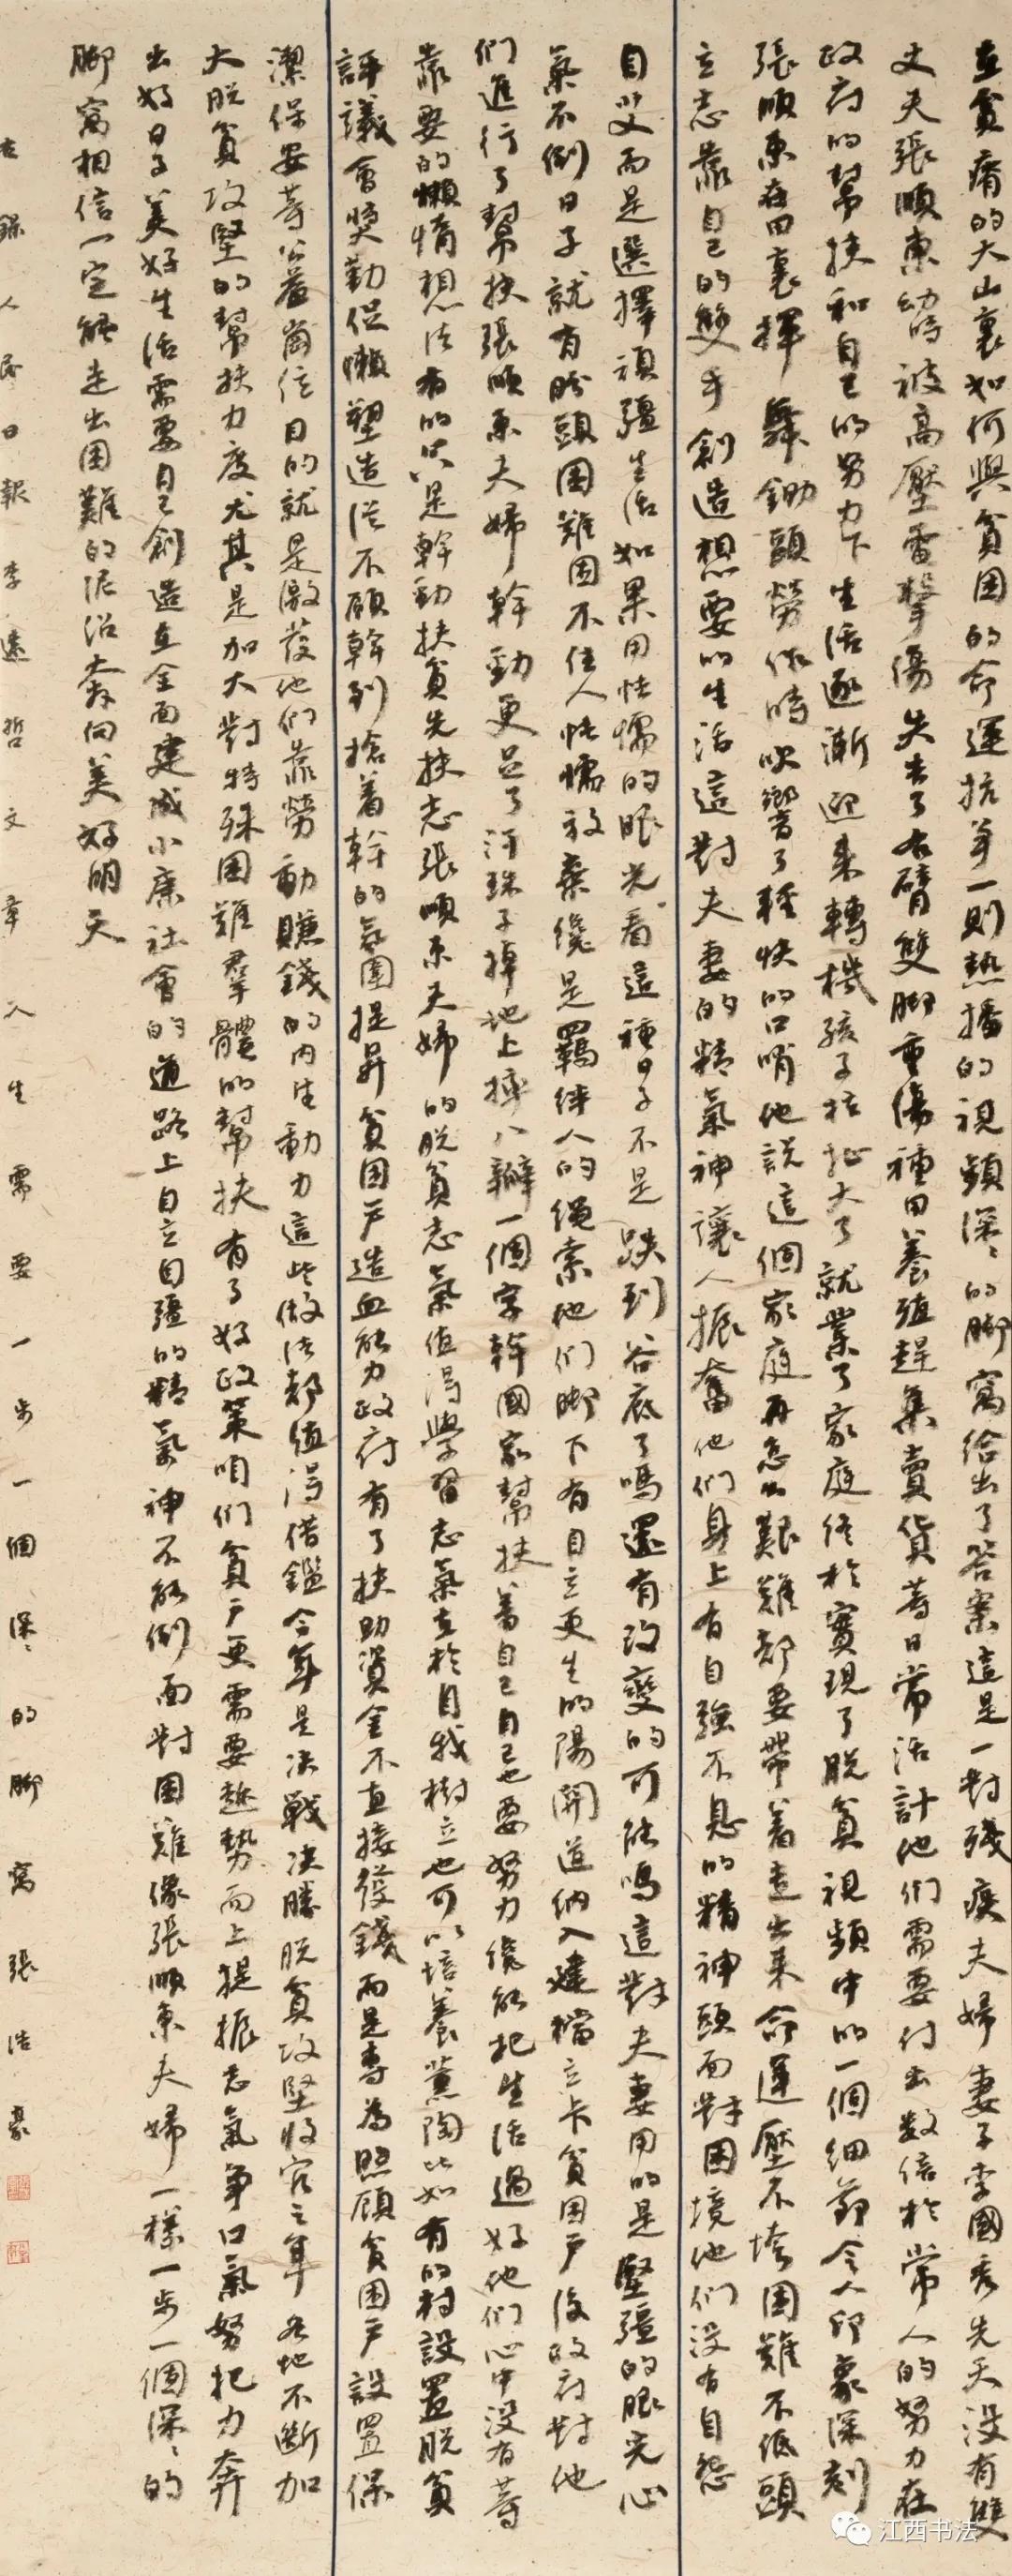 在貧瘠的大山裏如何與貧困的命運抗爭一則熱播的視頻深深的腳窩給出了答案這是一對殘疾夫婦妻子李國秀先天沒有雙
丈夫張順東幼時被高壓電擊傷失去了右臂雙腳重傷種田養殖趕集賣貨等日常活計他們需要付出數倍於常人的努力在
政府的幫扶和自己的努力下生活逐漸迎來轉機孩子拉扯大了就業了家庭終於實現了脫貧視頻中的一個細節令人印象深刻
張順東在田裏揮舞鋤頭勞作時吹響了輕快的口哨他說這個家庭再怎么艱難都要帶着走出來命運壓不垮困難不低頭
立志靠自己的雙手創造想要的生活這對夫妻的精氣神讓人振奮他們身上有自強不息的精神頭面對困境他們沒有自怨
自艾而是選擇頑疆生活如果用怯懦的眼光看這種日子不是跌到谷底了嗎還有改變的可能嗎這對夫妻用的是堅疆的眼光心
氣不倒日子就有盼頭困難困不住人怯懦放棄纔是羈絆人的繩索他們腳下有自立更生的陽關道納入建檔立卡貧困戶後政府對他
們進行了幫扶張順東夫婦幹勁更足了汗珠子掉地上摔八瓣一個字幹國家幫扶着自己自己也要努力纔能把生活過好他們心中沒有等
靠要的懶惰想法有的只是幹勁扶貧先扶志張順東夫婦的脫貧志氣值得學習志氣在於自我樹立也可以培養薰陶比如有的村設置脫貧
評議會獎勤促懶塑造從不願幹到搶着幹的氛圍提昇貧困戶造血能力政府有了扶助資金不直接發錢而是專為照顧貧困戶設置保
潔保安等公益崗位目的就是激發他們靠勞動賺錢的內生動力這些做法都值得借鑑今年是決戰決勝脫貧攻堅收官之年各地不斷加
大脫貧攻堅的幫扶力度尤其是加大對特殊困難羣體的幫扶有了好政策咱们貧戶更需要趁勢而上提振志氣爭口氣努把力奔
出好日子美好生活需要自己創造在全面建成小康社會的道路上自立自疆的精氣神不能倒面對困難像張順東夫婦一樣一步一個深深的
腳窩相信一定能走出困難的泥沼奔向美好明天
右錄人民日報李遠哲文章人生需要一步一個深深的腳窩張浩豪
江西书法